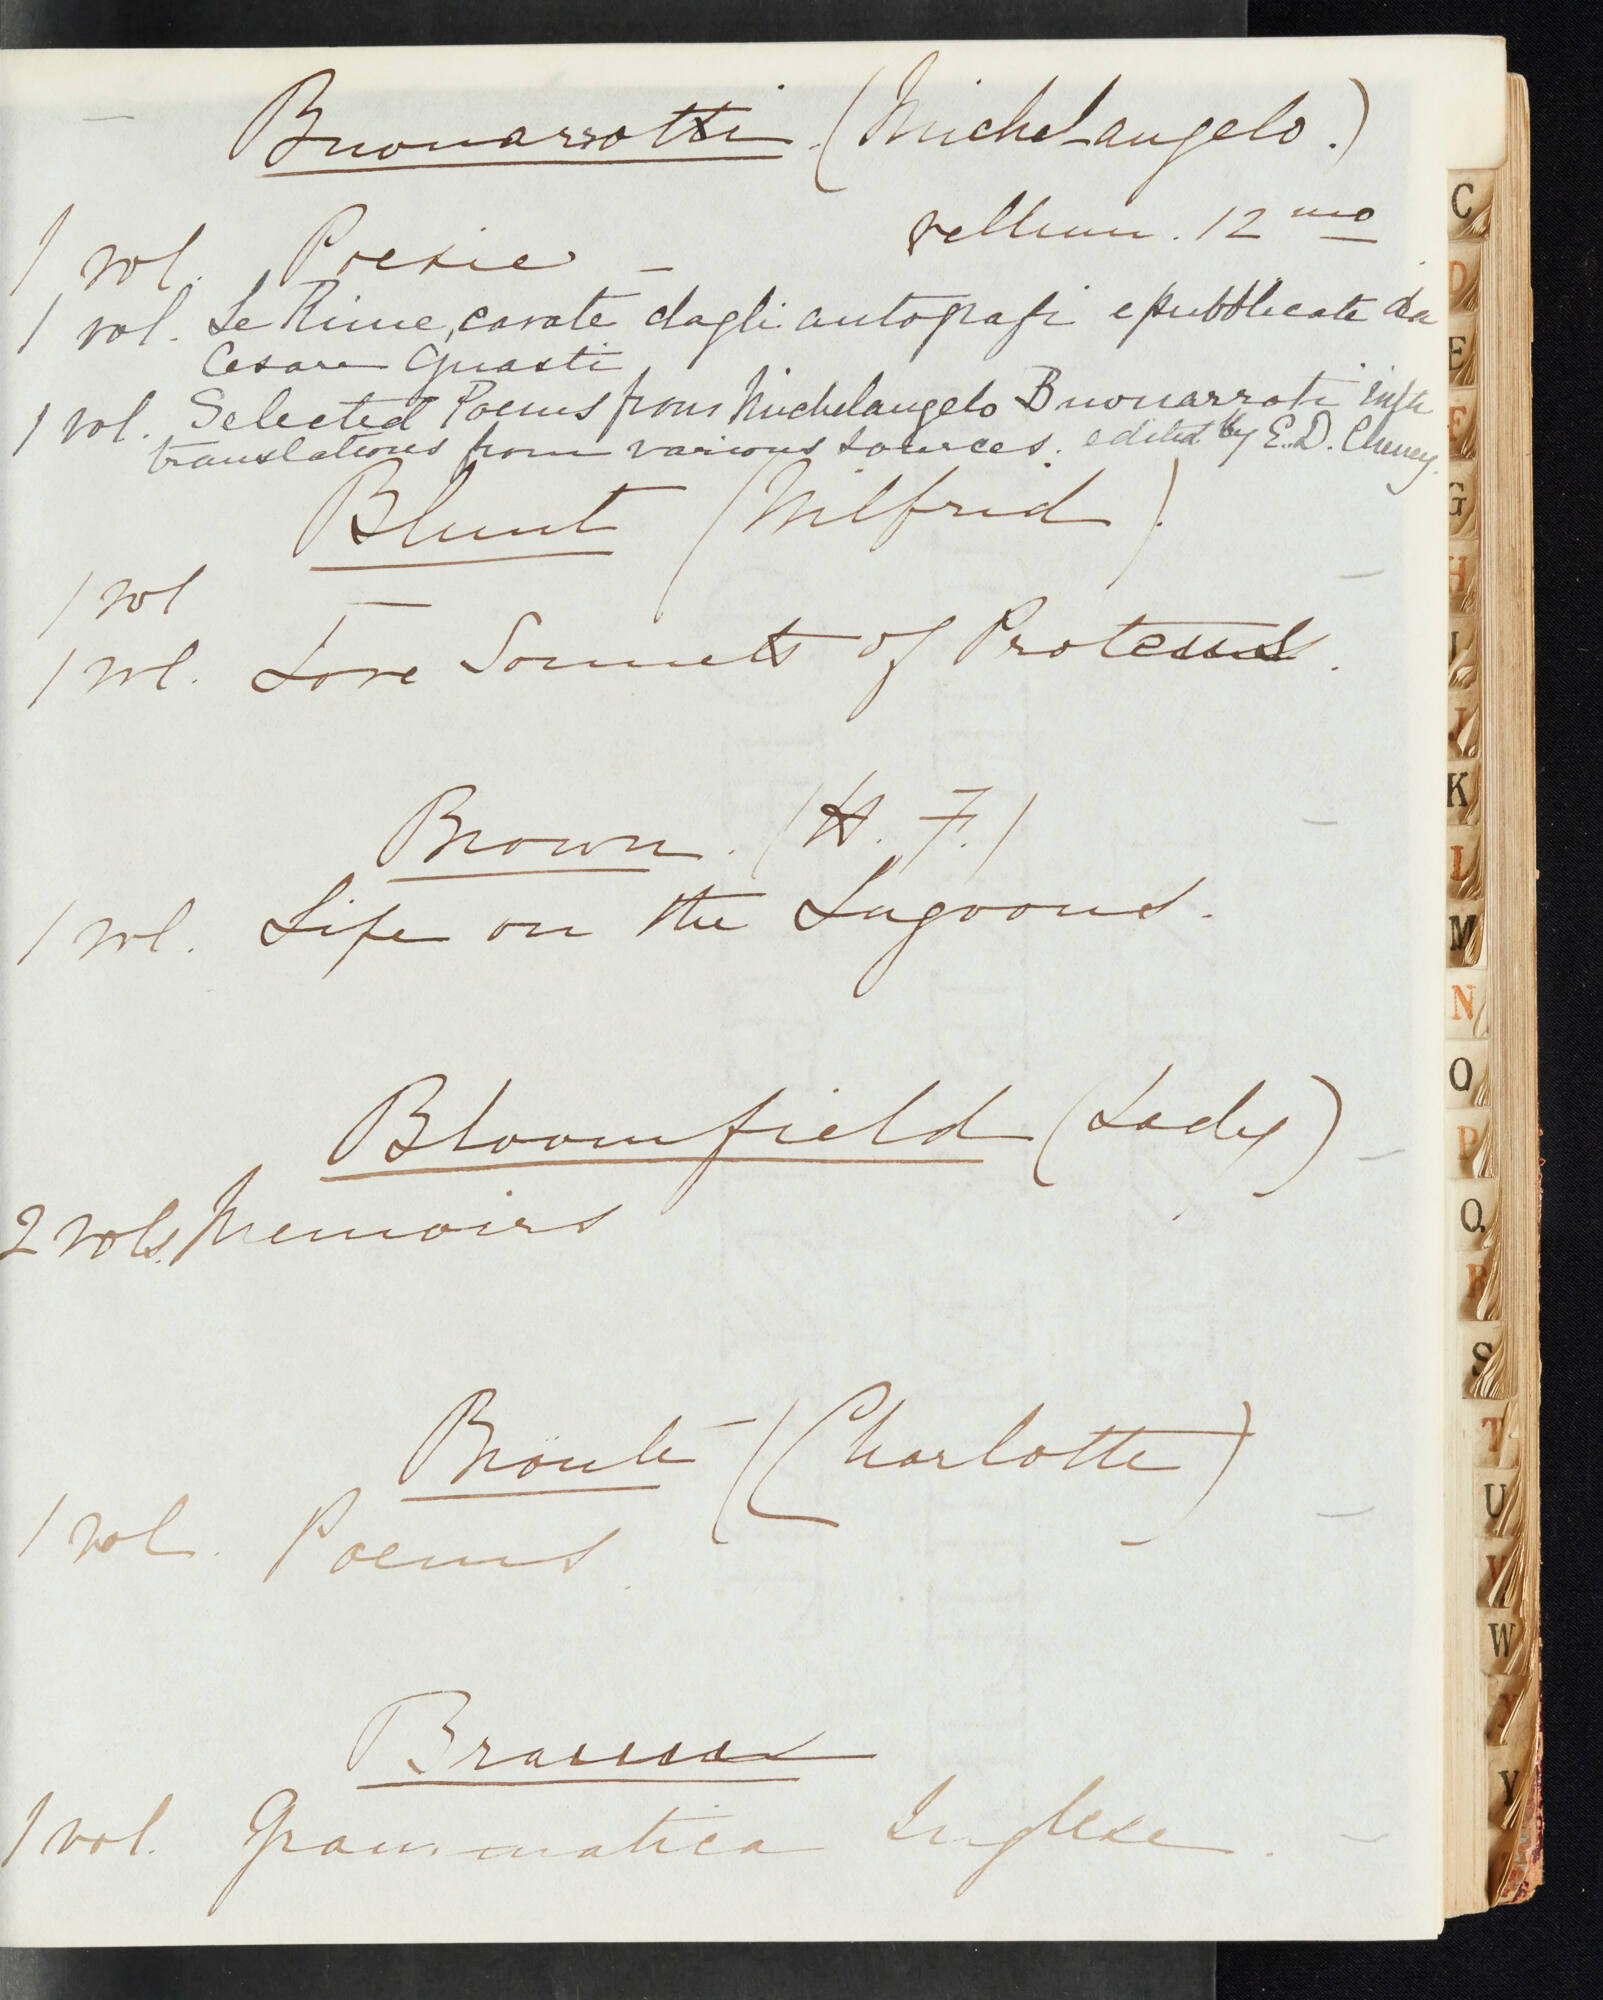 Buonarrotti. (Michel-angelo.)
1 vol. Poesie — vellum. 12mo
1 vol. Le Rime, cavate dagli autografi e pubblicate da
Cesare Guasti
1 vol. Selected Poems from Michelangelo Buonarroti with
translations from various sources. edited by E.D. Cheney.
Blunt (Wilfrid)
1 vol —
1 vol. Love Sonnets of Proteus.
Brown. (H. F.)
1 vol. Life on the Lagoons.
Bloomfield (Lady)
2 vols. Memoirs
Brontë (Charlotte)
1 vol. Poems.
1 vol. Grammatica Inglese.
C
D
E
F
G
H
I
J
K
L
M
N
O
P
Q
R
S
T
U
V
W
X
Y